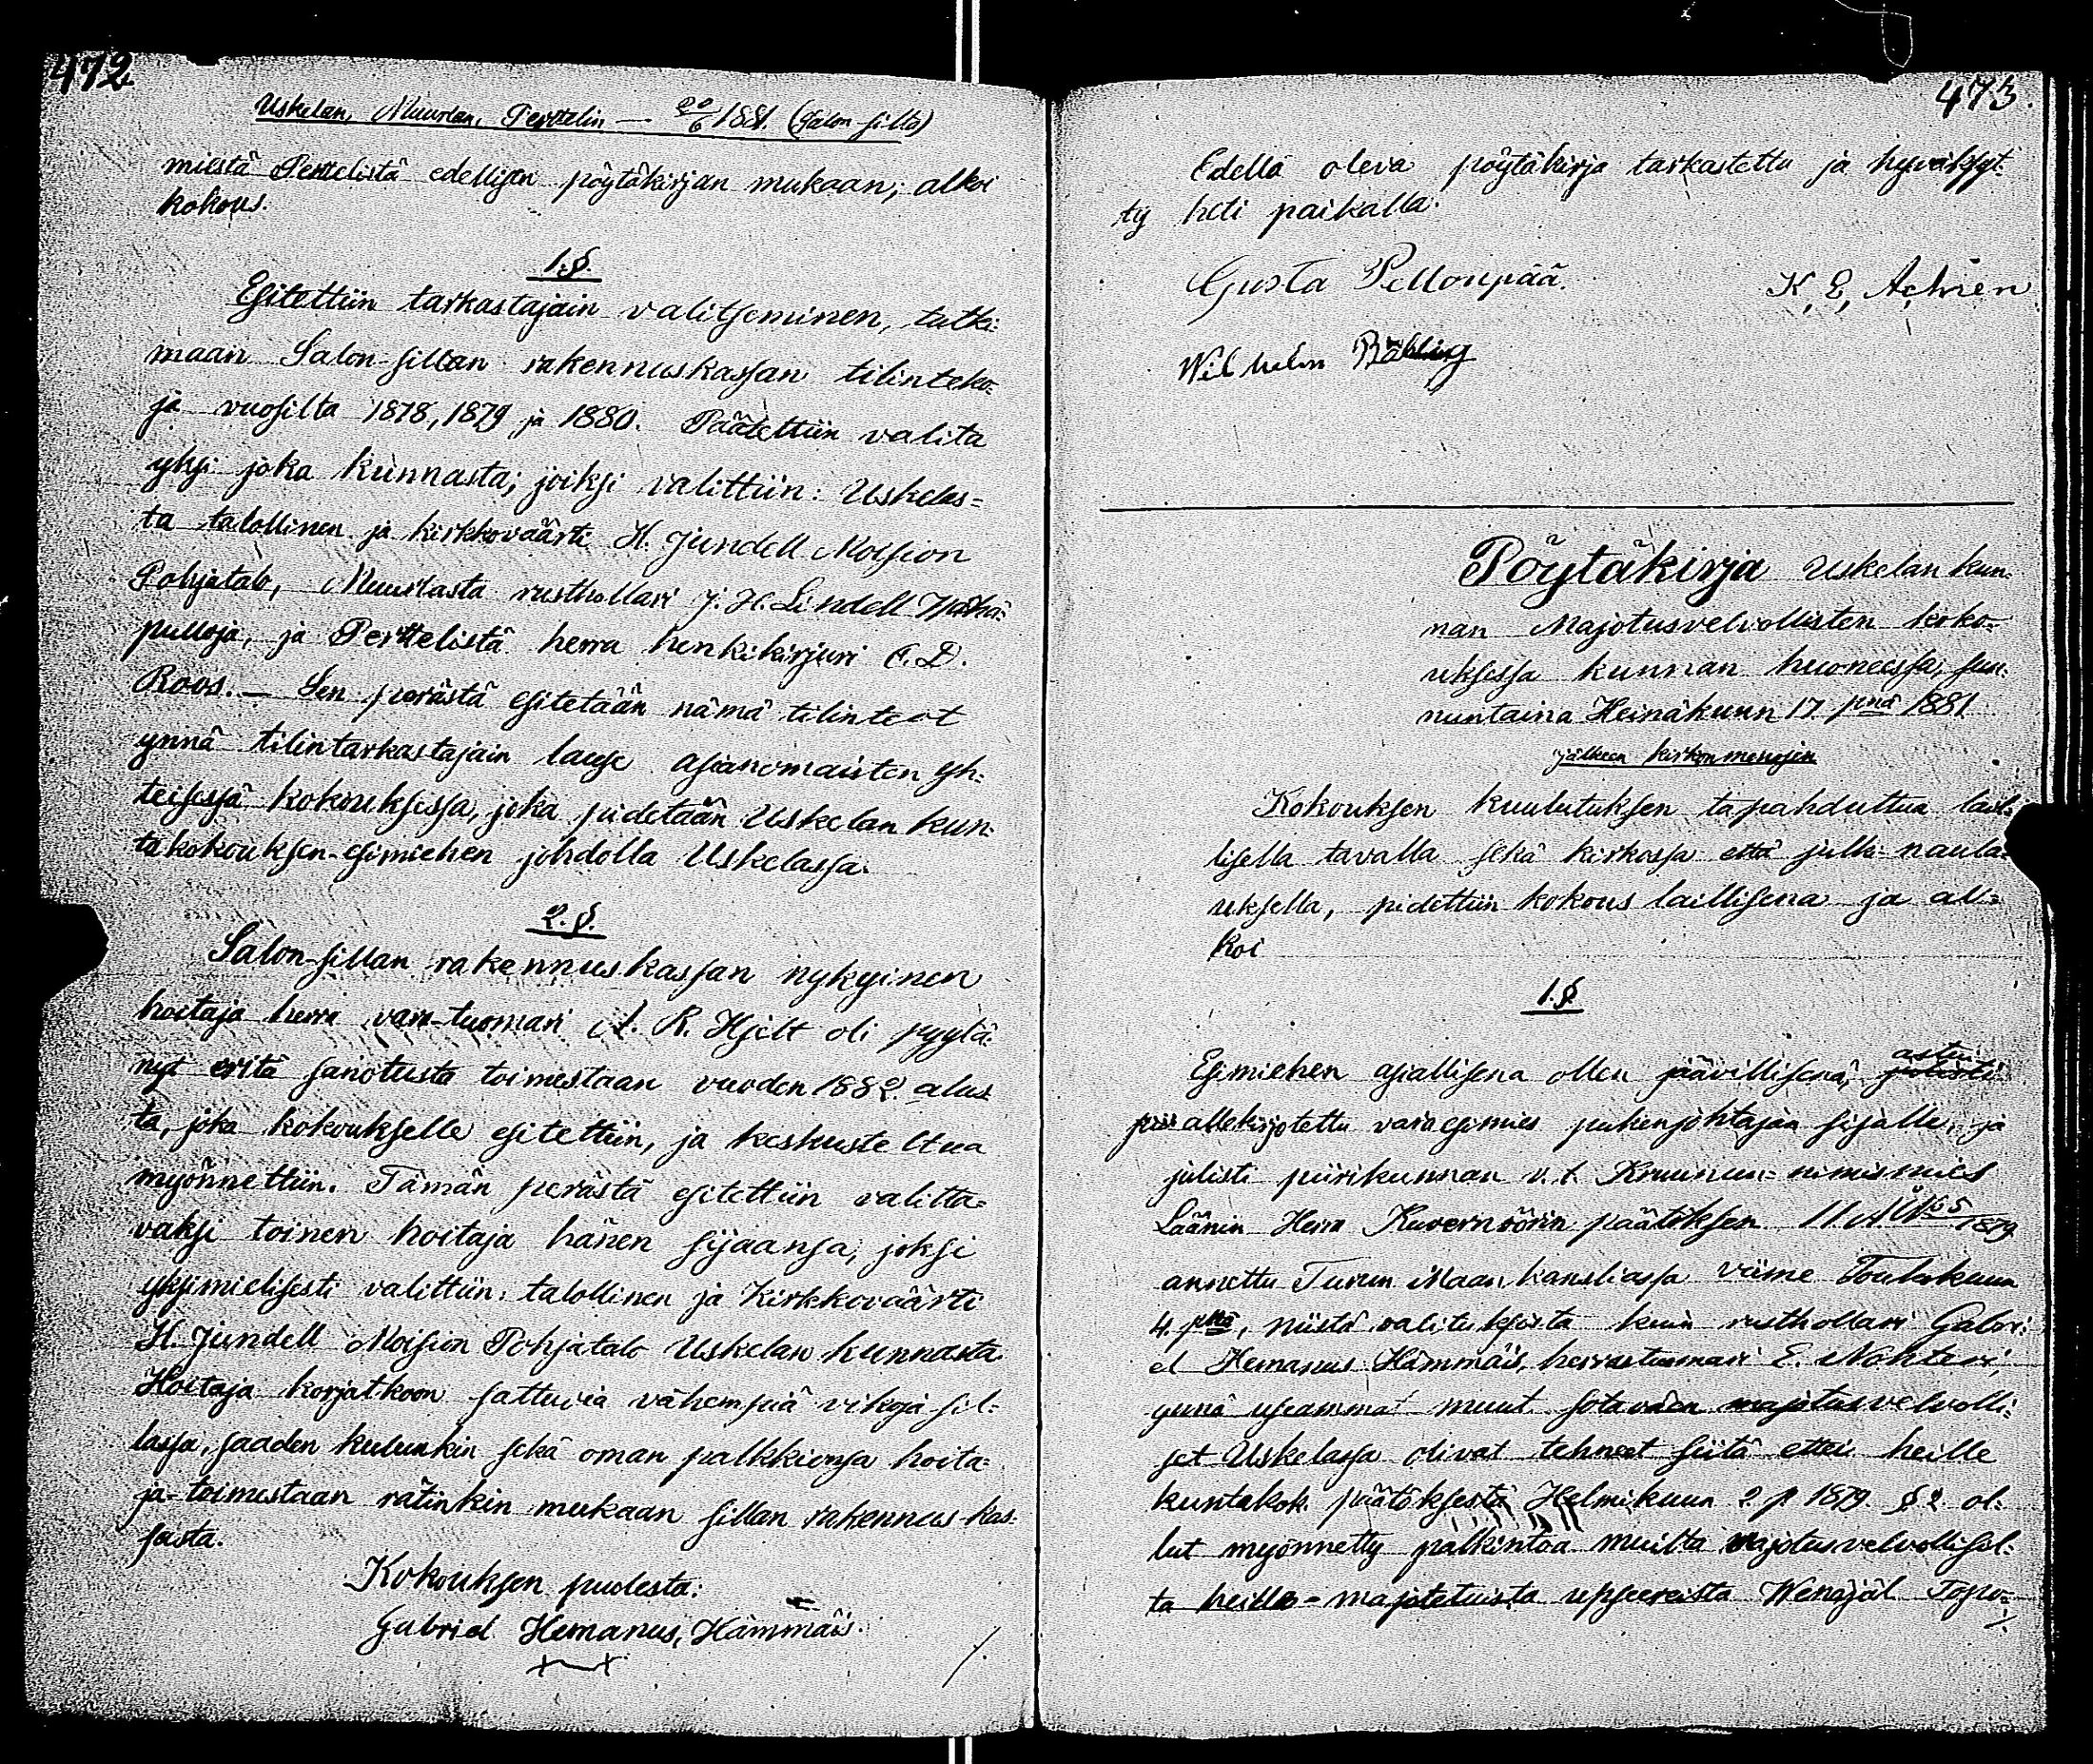 472
Uskelan, Muurlan, Perttelin — 20/6 1881. (Salon-silta)
miestä Perttelistä edellisen pöytäkirjan mukaan; alkoi
kokous.
1.§.
Esitettiin tarkastajain valitseminen, tutki-
maan Salon-sillan rakennuskassan tilinteko-
ja vuosilta 1878, 1879 ja 1880. Päätettiin valita
yksi joka kunnasta; joiksi valittiin: Uskelas-
ta talollinen ja kirkkoväärti H. Jundell Moision
Pohjatalo, Muurlasta rusthollari J. H. Lindell
pulloja, ja Perttelistä herra henkikirjuri C. D.
Roos. — Sen perästä esitetään nämä tilinteot
ynnä tilintarkastajain lause asianomaisten yh-
teisessä kokouksessa, joka pidetään Uskelan kun-
takokouksen-esimiehen johdolla Uskelassa.
2.§.
Salon-sillan rakennuskassan nykyinen
hoitaja herra vara-tuomari A. R. Hjelt oli pyytä-
nyt eritä sanotusta toimestaan vuoden 1882 alus
ta, joka kokoukselle esitettiin, ja keskusteltua
myönnettiin. Tämän perästä esitettiin valitta-
vaksi toinen hoitaja hänen sijaansa; joksi
yksimielisesti valittiin: talollinen ja Kirkkoväärti
H. Jundell Moision Pohjatalo Uskelan kunnasta.
Hoitaja korjatkoon sattuvia vähempiä vikoja sil-
lassa, saaden kulunkin sekä oman palkkionsa hoita-
ja-toimestaan rätinkin mukaan sillan rakennus-kas-
sasta.
Kokouksen puolesta:
Gabriel Hemanus, Hämmäis.
473.
Edellä oleva pöytäkirja tarkastettu ja hyväksyt-
ty heti paikalla.
Gusta Pellonpää. K. E. Achrén
Wilhelm
Pöytäkirja Uskelan kun-
nan Majotusvelvollisten koko-
uksessa kunnan huoneessa, sun-
nuntaina Heinäkuun 17 pnä 1881
jälkeen kirkonmenojen
Kokouksen kuulutuksen tapahduttua lail-
lisella tavalla sekä kirkossa että julki-naula-
uksella, pidettiin kokous laillisena ja al-
koi
1.§
Esimiehen asiallisena ollen jäävillisenä, astui
allekirjotettu varaesimies puheenjohtajan sijalle, ja
julisti piirikunnan v. t. Kruunun-nimismies
Läänin Herra Kuvernöörin päätöksen 1879
annettu Turun Maan kansliassa viime Toukokuun
4. pnä, niistä valituksista kuin rusthollari Gabri-
el Hemanus Hämmäis, herrastuomari E. Nohteri,
ynnä useammat muut sotaväen majotusvelvolli-
set Uskelassa olivat tehneet siitä ettei heille
kuntakok. päätöksestä Helmikuun 2 p 1879. § 2 ol-
lut myönnetty palkintoa muilta majotusvelvollisil-
ta heille-majotetuista upseereista Wenäjäl. Topo-